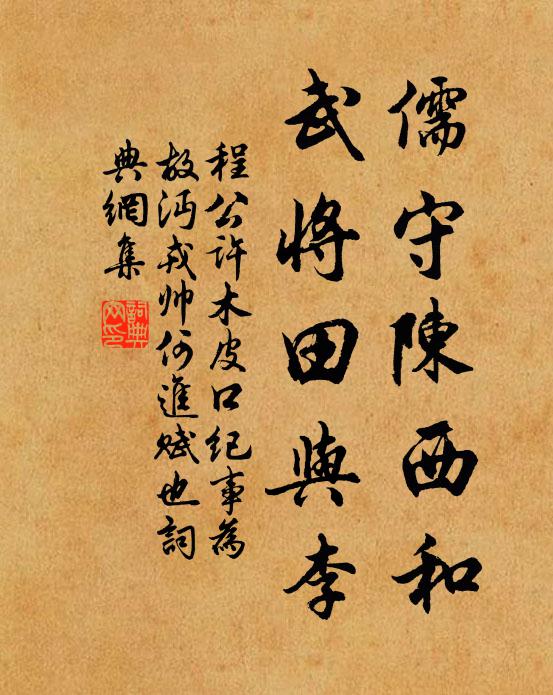 儒守陳西和
武將田與李
程公許木皮口紀事為
故沔戎帥何進賦也詞
典網集
詞典網印